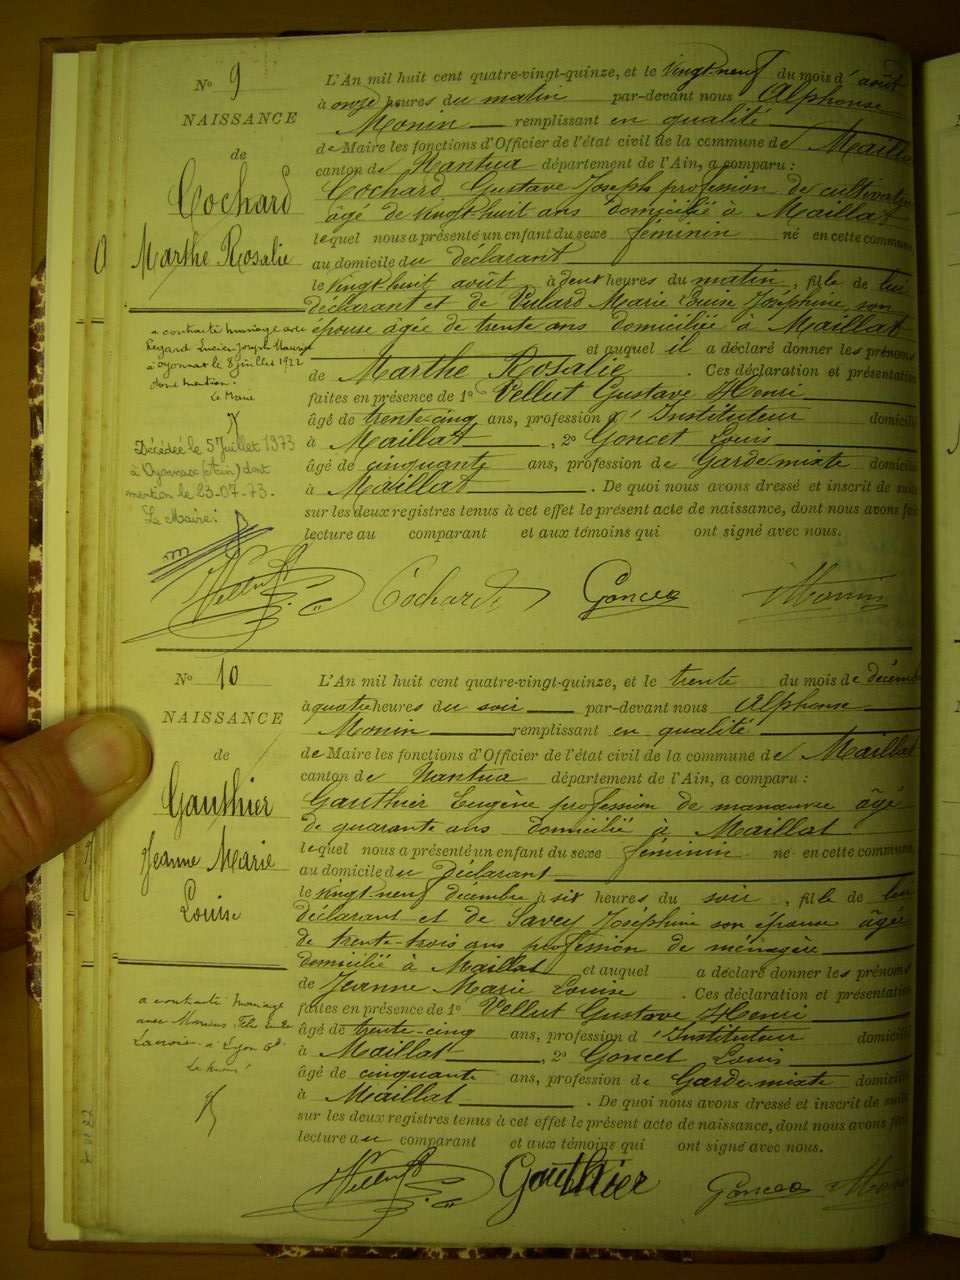 N° 9
NAISSANCE
de
Cochard
Marthe Rosalie
a contracté mariage avec
Regard Lucien Joseph Maurice
à Oyonnax le 8 juillet 1922
dont mention.
Le Maire
Décédée le 5 Juillet 1973
à Oyonnax (Ain) dont
mention le 23-07-73.
Le Maire:
L'An mil huit cent quatre-vingt-quinze, et le vingt neuf du mois d'août
à onze heures du matin par-devant nous Alphonse
Monin remplissant en qualité
de Maire les fonctions d'Officier de l'état civil de la commune de Maillat
canton de Nantua département de l'Ain, a comparu :
Cochard Gustave Joseph profession de cultivateur
âgé de vingt huit ans domicilié à Maillat
lequel nous a présenté un enfant du sexe féminin né en cette commune
au domicile du déclarant
le vingt huit août à deux heures du matin, fille de lui
déclarant et de Vulard Marie Louise Joséphine son
épouse âgée de trente ans domiciliée à Maillat
et auquel il a déclaré donner les prénoms
de Marthe Rosalie . Ces déclaration et présentation
faites en présence de 1° Vellut Gustave Henri
âgé de trente-cinq ans, profession d'Instituteur domicilié
à Maillat , 2° Goncet Louis
âgé de cinquante ans, profession de Garde mixte domicilié
à Maillat . De quoi nous avons dressé et inscrit de suite
sur les deux registres tenus à cet effet le présent acte de naissance, dont nous avons fait
lecture au comparant et aux témoins qui ont signé avec nous.
Vellut Cochard Goncet Monin
N° 10
NAISSANCE
de
Gauthier
Jeanne Marie
Louise
a contracté mariage
avec
Lacroix à Lyon
L'An mil huit cent quatre-vingt-quinze, et le trente du mois de décembre
à quatre heures du soir par-devant nous Alphonse
Monin remplissant en qualité
de Maire les fonctions d'Officier de l'état civil de la commune de Maillat
canton de Nantua département de l'Ain, a comparu :
Gauthier Eugène profession de manœuvre âgé
de quarante ans domicilié à Maillat
lequel nous a présenté un enfant du sexe féminin né en cette commune
au domicile du déclarant
le vingt-neuf décembre à six heures du soir , fille de lui
déclarant et de Savey Joséphine son épouse âgée
de trente-trois ans profession de ménagère
domicilié à Maillat et auquel a déclaré donner les prénoms
de Jeanne Marie Louise . Ces déclaration et présentation
faites en présence de 1° Vellut Gustave Henri
âgé de trente-cinq ans, profession d'Instituteur domicilié
à Maillat , 2° Goncet Louis
âgé de cinquante ans, profession de Garde mixte domicilié
à Maillat . De quoi nous avons dressé et inscrit de suite
sur les deux registres tenus à cet effet le présent acte de naissance, dont nous avons fait
lecture au comparant et aux témoins qui ont signé avec nous.
Vellut Gauthier Goncet Monin